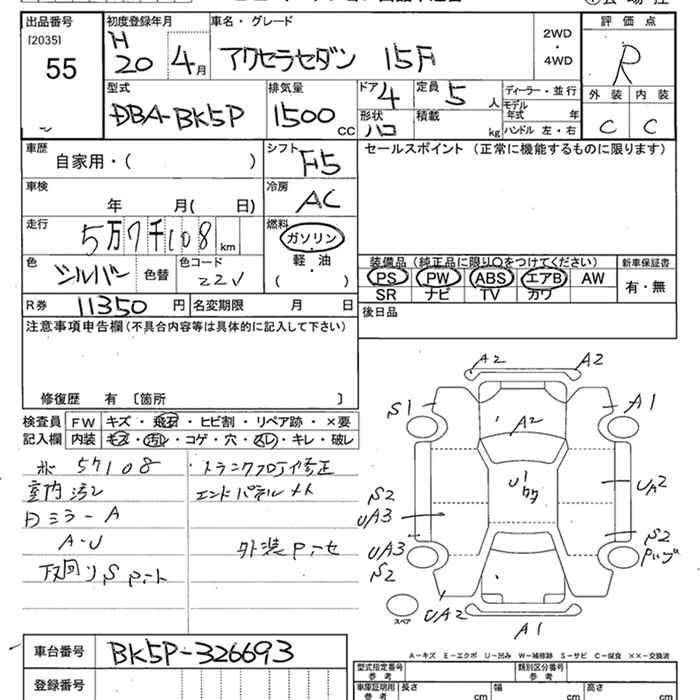 出品番号 初度登録年月 車名・グレード 評価点
[2035] H 2WD
55 20 4月 アクセラセダン 15F ・4WD R
型式 排気量 ドア 4 定員 5 人 ディーラー・並行 外装 内装
DBA-BK5P 1500 CC 形状 ハコ 積載 kg モデル年式 年 C C
ハンドル 左・右
車歴 シフト F5 セールスポイント (正常に機能するものに限ります)
自家用・( )
車検 冷房 AC
年 月( 日)
走行 燃料
5万7千108 km ガソリン
色 シルバー 色替 色コード 22V 軽油
・
( )
装備品 (純正品に限り○をつけてください) 新車保証書
PS PW ABS エアB AW 有・無
SR ナビ TV カワ
R券 11350円 名変期限 月 日 後日品
注意事項申告欄(不具合内容等は具体的に記入して下さい)
修復歴 有 〔箇所 〕
検査員 FW キズ・飛石・ヒビ割・リペア跡・×要
記入欄 内装 キズ・汚レ・コゲ・穴・スレ・キレ・破レ
57108
室内汚レ エンドパネルメ
DミラーA
A-U 外装
下回りS
A2 A2
S1 A1
A2
U1
S2 UA2
UA3
UA3 S2
S2
スペア UA2
A1
A-キズ E-エクボ U-凹み W-補修跡 S-サビ C-腐食 ××-交換済
車台番号 BK5P-326693
型式指定番号 参考 類別区分番号 参考
登録番号 車庫証明用 参考 長さ cm 幅 cm 高さ cm